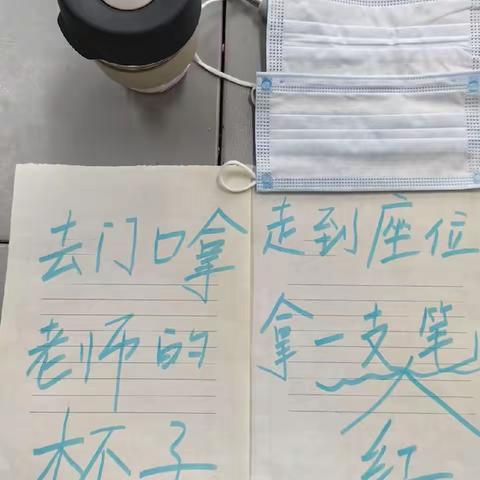 去门口拿
老师的
杯子
走到座位
拿一支笔
红